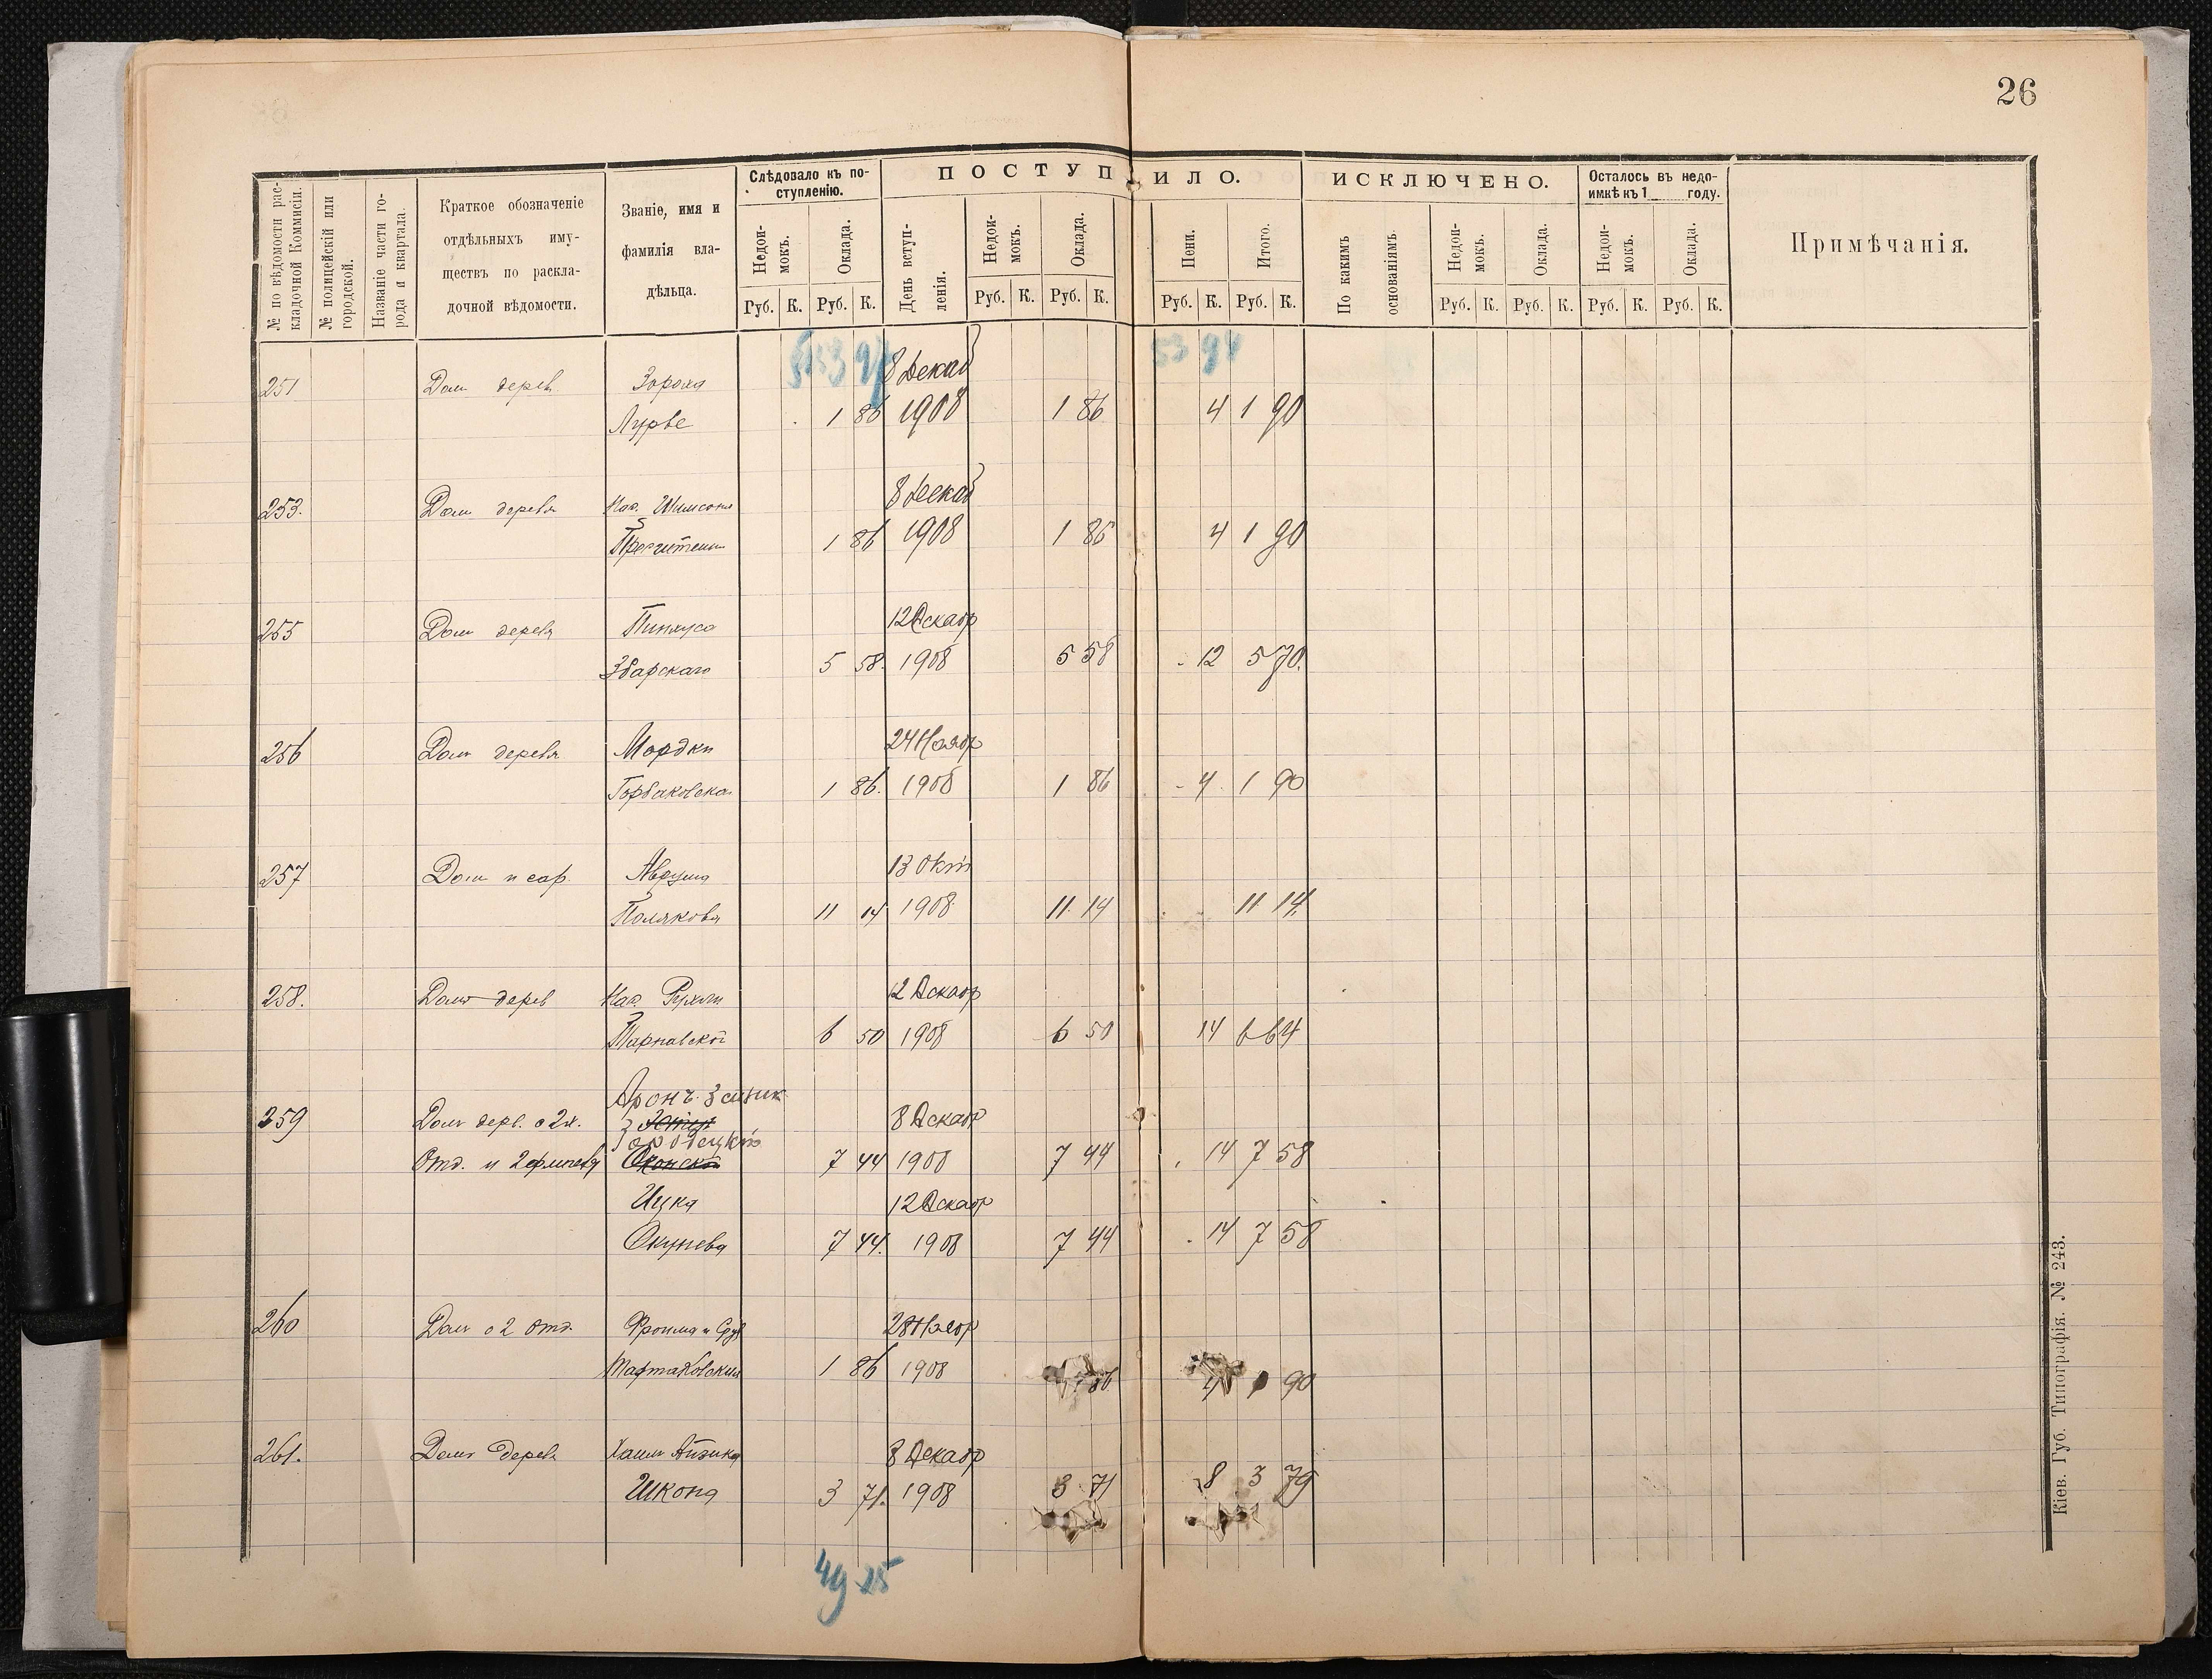 26
№ по вѣдомости раскладочной Коммисіи.
№ полицейскій или городской.
Названіе части города и квартала.
Краткое обозначеніе отдѣльныхъ имуществъ по раскладочной вѣдомости.
Званіе, имя и фамилія владѣльца.
Слѣдовало къ поступленію.
Недоимокъ. Оклада.
ПОСТУПИЛО.
День вступленія. Недоимокъ. Оклада. Пени. Итого.
ИСКЛЮЧЕНО.
По какимъ основаніямъ. Недоимокъ. Оклада.
Осталось въ недоимкѣ къ 1 году.
Недоимокъ. Оклада.
Примѣчанія.
Руб. К. Руб. К. Руб. К. Руб. К. Руб. К. Руб. К. Руб. К. Руб. К. Руб. К. Руб. К.
53 94
251 Дом дерев 8 Декаб
Лурье 1 86 1908 1 86 4 1 90
253. Дом дерев Нас. Шимсона 8 Декаб
1 86 1908 1 86 4 1 90
255 Дом дерев Пинкуса 12 Декабр
Збарскаго 5 58. 1908 5 58 12 5 70.
256 Дом дерев Мордки 24 Ноябр
1 86. 1908 1 86 4 1 90
257 Дом и сар. Аврума 13 Окт
Полякова 11 14 1908 11 14 11 14
258. Домъ дерев Нас. Рухли 12 Декабр
Тарнавской 6 50 1908 6 50 14 6 64
Аронъ Зейлик
259 Домъ дерв. о 2х. 8 Декабр
Городецкій
Отд. и 2 флигеля 7 44 1908 7 44 14 7 58
Ицка 12 Декабр
Окунева 7 44. 1908 7 44 14 7 58
260 Домъ о 2 отд. Фроима и Срул 28 Ноябр
Тартаковских 1 86 1908 86 4 1 90
261. Домъ дерев Хаим Айзика 8 Декабр
Шкопа 3 71. 1908 3 71 8 3 79
49 25
Кіев. Губ. Типографія. № 243.